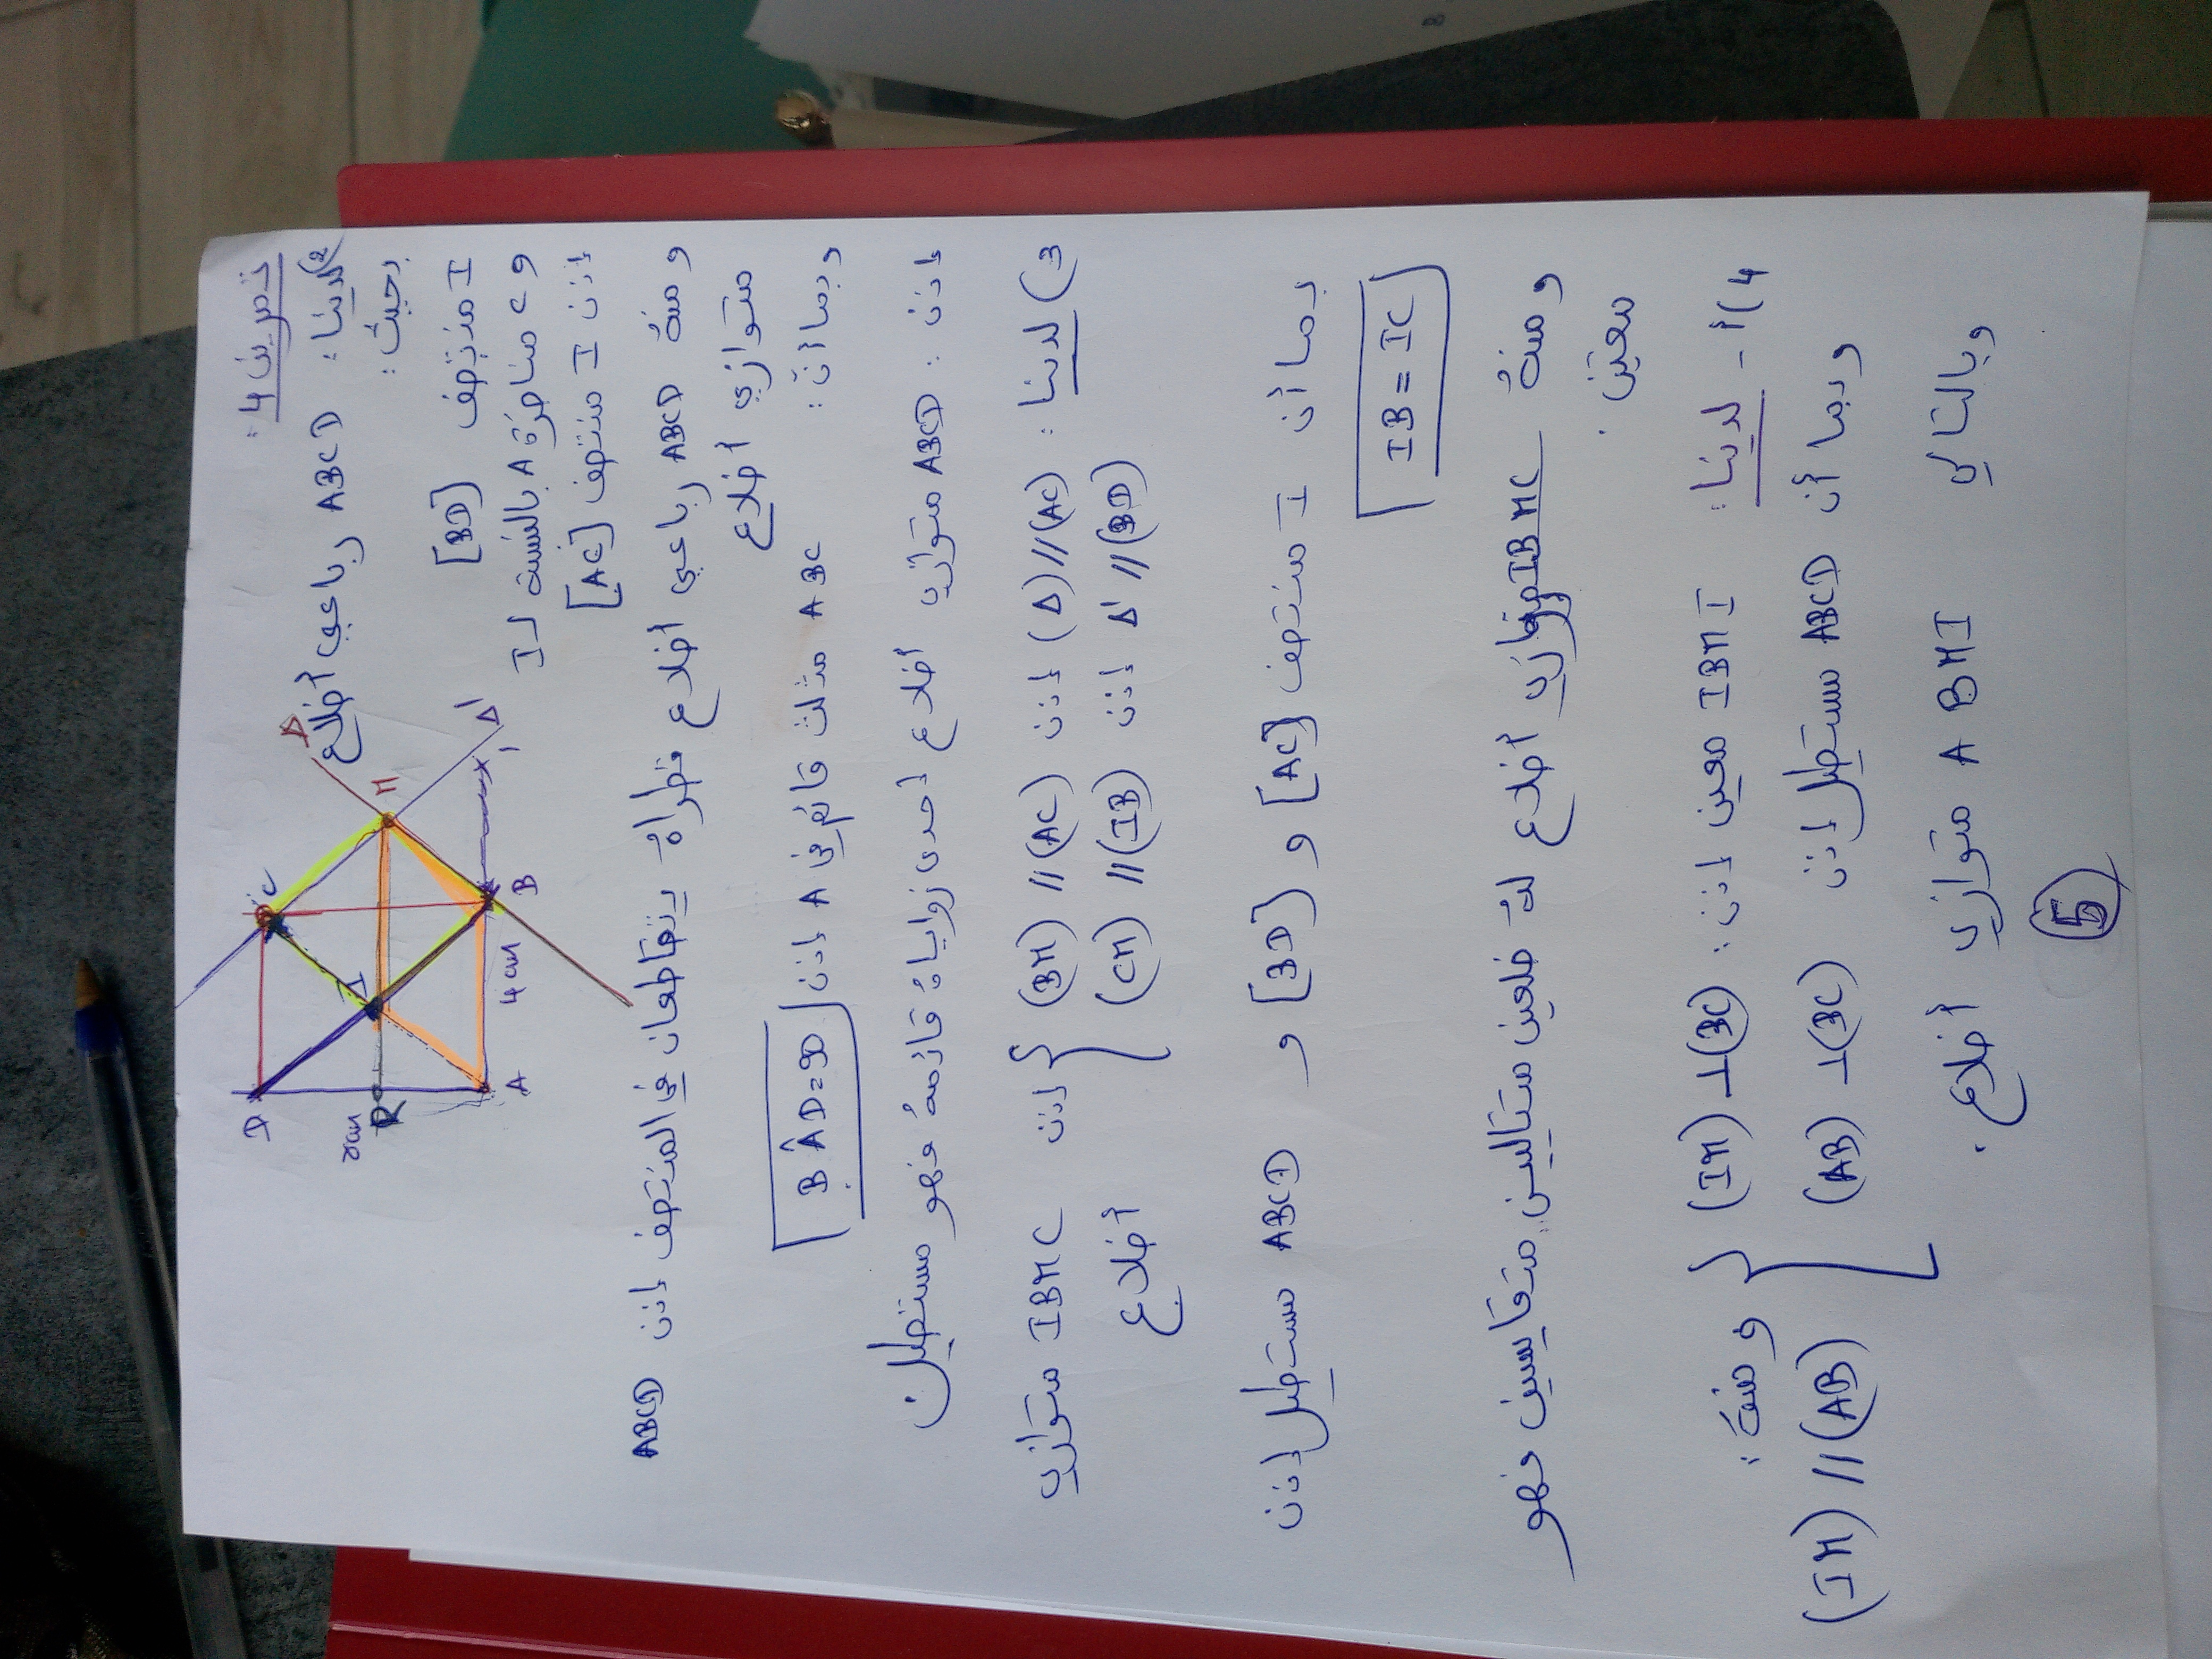 تمرين 4 :
2) لدينا : ABCD رباعي أضلاع
بحيث :
I منتصف [BD]
و C مماثلة A بالنسبة لـ I
إذن I منتصف [AC]
ومنه ABCD رباعي أضلاع قطراه يتقاطعان في المنتصف إذن ABCD
متوازي أضلاع
وبما أن : ABC مثلث قائم في A إذن BÂD=90
إذن : ABCD متوازي أضلاع إحدى زواياه قائمة فهو مستطيل
3) لدينا : (Δ)//(AC) إذن (BM)//(AC) إذن IBMC متوازي
Δ'//(BD) إذن (CM)//(IB) أضلاع
بما أن I منتصف [AC] و [BD] و ABCD مستطيل إذن
IB = IC
ومنه IBMC متوازي أضلاع له ضلعين متتاليين متقايسين فهو
معين.
4) أ - لدينا : IBMI معين إذن : (IM)⊥(BC) ومنه :
وبما أن ABCD مستطيل إذن (AB)⊥(BC) (IM)//(AB)
وبالتالي ABMI متوازي أضلاع.
5
D
C
M
Δ
Δ'
I
R
A
B
4cm